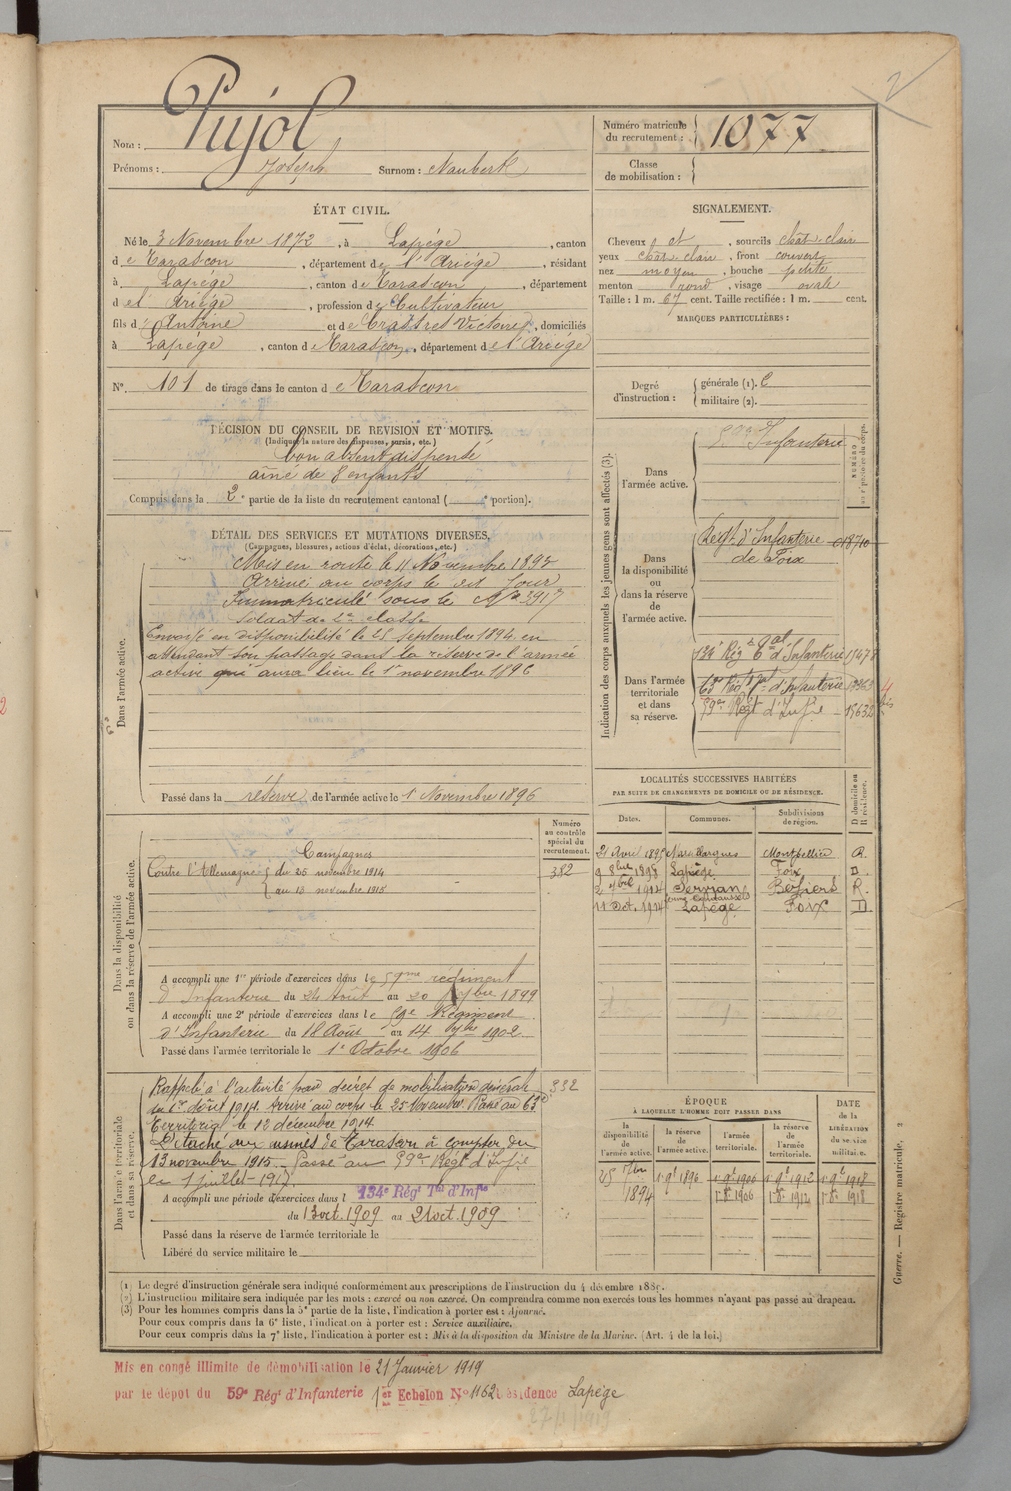 2
Pujol
Nom :
Prénoms : Joseph Surnom : Naubert
Numéro matricule du recrutement : 1077
Classe de mobilisation :
ÉTAT CIVIL.
Né le 3 Novembre 1872, à Lapège, canton
de Tarascon, département de l'Ariège, résidant
à Lapège, canton de Tarascon, département
de l'Ariège, profession de Cultivateur
fils d'Antoine et de Victoire, domiciliés
à Lapège, canton de Tarascon, département de l'Ariège
N° 101 de tirage dans le canton de Tarascon
SIGNALEMENT.
Cheveux et, sourcils chât. clair
yeux chât. clair, front couvert
nez moyen, bouche petite
menton rond, visage ovale
Taille : 1 m. 67 cent. Taille rectifiée : 1 m. cent.
MARQUES PARTICULIÈRES :
Degré d'instruction : générale (1).
militaire (2).
DÉCISION DU CONSEIL DE REVISION ET MOTIFS.
(Indiquer la nature des dispenses, sursis, etc.)
bon absent dispensé
aîné de 8 enfants
Compris dans la 2e partie de la liste du recrutement cantonal ( e portion).
DÉTAIL DES SERVICES ET MUTATIONS DIVERSES.
(Campagnes, blessures, actions d'éclat, décorations, etc.)
Dans l'armée active.
Mis en route le 11 Novembre 1893
Arrivé au corps le dit jour
Immatriculé sous le N° 3917
Soldat de 2e classe
Envoyé en disponibilité le 25 Septembre 1894 en
attendant son passage dans la réserve de l'armée
active qui aura lieu le 1er novembre 1896
Passé dans la réserve de l'armée active le 1 Novembre 1896
Indication des corps auxquels les jeunes gens sont affectés (3).
NUMÉRO au répertoire du corps.
Dans l'armée active.
Infanterie
Dans la disponibilité ou dans la réserve de l'armée active.
Régt d'Infanterie
de Foix
Dans l'armée territoriale et dans sa réserve.
134e Rég Tal d'Infanterie
63e Rég d'Infanterie
59e Régt d'Infie 15632
4 bis
LOCALITÉS SUCCESSIVES HABITÉES
PAR SUITE DE CHANGEMENTS DE DOMICILE OU DE RÉSIDENCE.
Dates. Communes. Subdivisions de région. D domicile ou R résidence.
21 Avril 1895 Marsillargues Montpellier R.
9 8bre 1898 Lapège Foix D.
2 1914 Servian Béziers R.
11 Oct. 1914 Lapège Foix D
Dans la disponibilité ou dans la réserve de l'armée active.
Numéro au contrôle spécial du recrutement.
382
Campagnes
Contre l'Allemagne du 25 novembre 1914
au 13 novembre 1915
A accompli une 1re période d'exercices dans le 59me régiment
d'Infanterie du 24 Août au 20 7bre 1899
A accompli une 2e période d'exercices dans le 59e Régiment
d'Infanterie du 18 Août au 14 7bre 1902
Passé dans l'armée territoriale le 1er Octobre 1906
Dans l'armée territoriale et dans sa réserve.
332
Rappelé à l'activité par décret de mobilisation générale
du 1er Août 1914. Arrivé au corps le 25 Novembre. Passé au 63e
Territorial le 12 décembre 1914
Détaché aux usines de Tarascon à compter du
13 novembre 1915. Passé au 59e Régt d'Infie
le 1 juillet 1917.
A accompli une période d'exercices dans l 134e Régt Tal d'Infie
du 13 oct. 1909 au 21 oct. 1909
Passé dans la réserve de l'armée territoriale le
Libéré du service militaire le
ÉPOQUE
À LAQUELLE L'HOMME DOIT PASSER DANS
la disponibilité de l'armée active. la réserve de l'armée active. l'armée territoriale. la réserve de l'armée territoriale.
DATE de la LIBÉRATION du service militaire.
25 7bre 1894 1896 1906 1912 1918
1906 1912 1918
Guerre. — Registre matricule. 2
(1) Le degré d'instruction générale sera indiqué conformément aux prescriptions de l'instruction du 4 décembre 1889.
(2) L'instruction militaire sera indiquée par les mots : exercé ou non exercé. On comprendra comme non exercés tous les hommes n'ayant pas passé au drapeau.
(3) Pour les hommes compris dans la 5e partie de la liste, l'indication à porter est : Ajourné.
Pour ceux compris dans la 6e liste, l'indication à porter est : Service auxiliaire.
Pour ceux compris dans la 7e liste, l'indication à porter est : Mis à la disposition du Ministre de la Marine. (Art. 4 de la loi.)
Mis en congé illimité de démobilisation le 21 Janvier 1919
par le dépôt du 59e Régt d'Infanterie 1er Echelon N° 1162 Résidence Lapège
27/1/1919